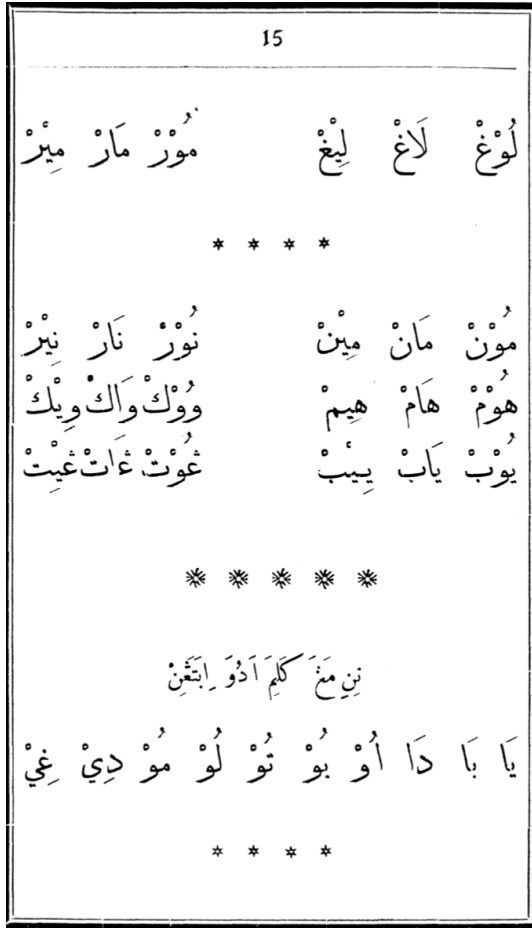 15
لُوْغْ لَاغْ لِيْغْ مُوْرْ مَارْ مِيْرْ
* * * *
مُوْنْ مَانْ مِيْنْ نُوْرْ نَارْ نِيْرْ
هُوْمْ هَامْ هِيمْ وُوْكْ وَاكْ وِيْكْ
يُوْبْ يَابْ يِـيْبْ ڠُوْتْ ڠَاتْ ڠِيْتْ
* * * * *
يَا بَا دَا اُوْ بُوْ تُوْ لُوْ مُوْ دِيْ غِيْ
* * * *